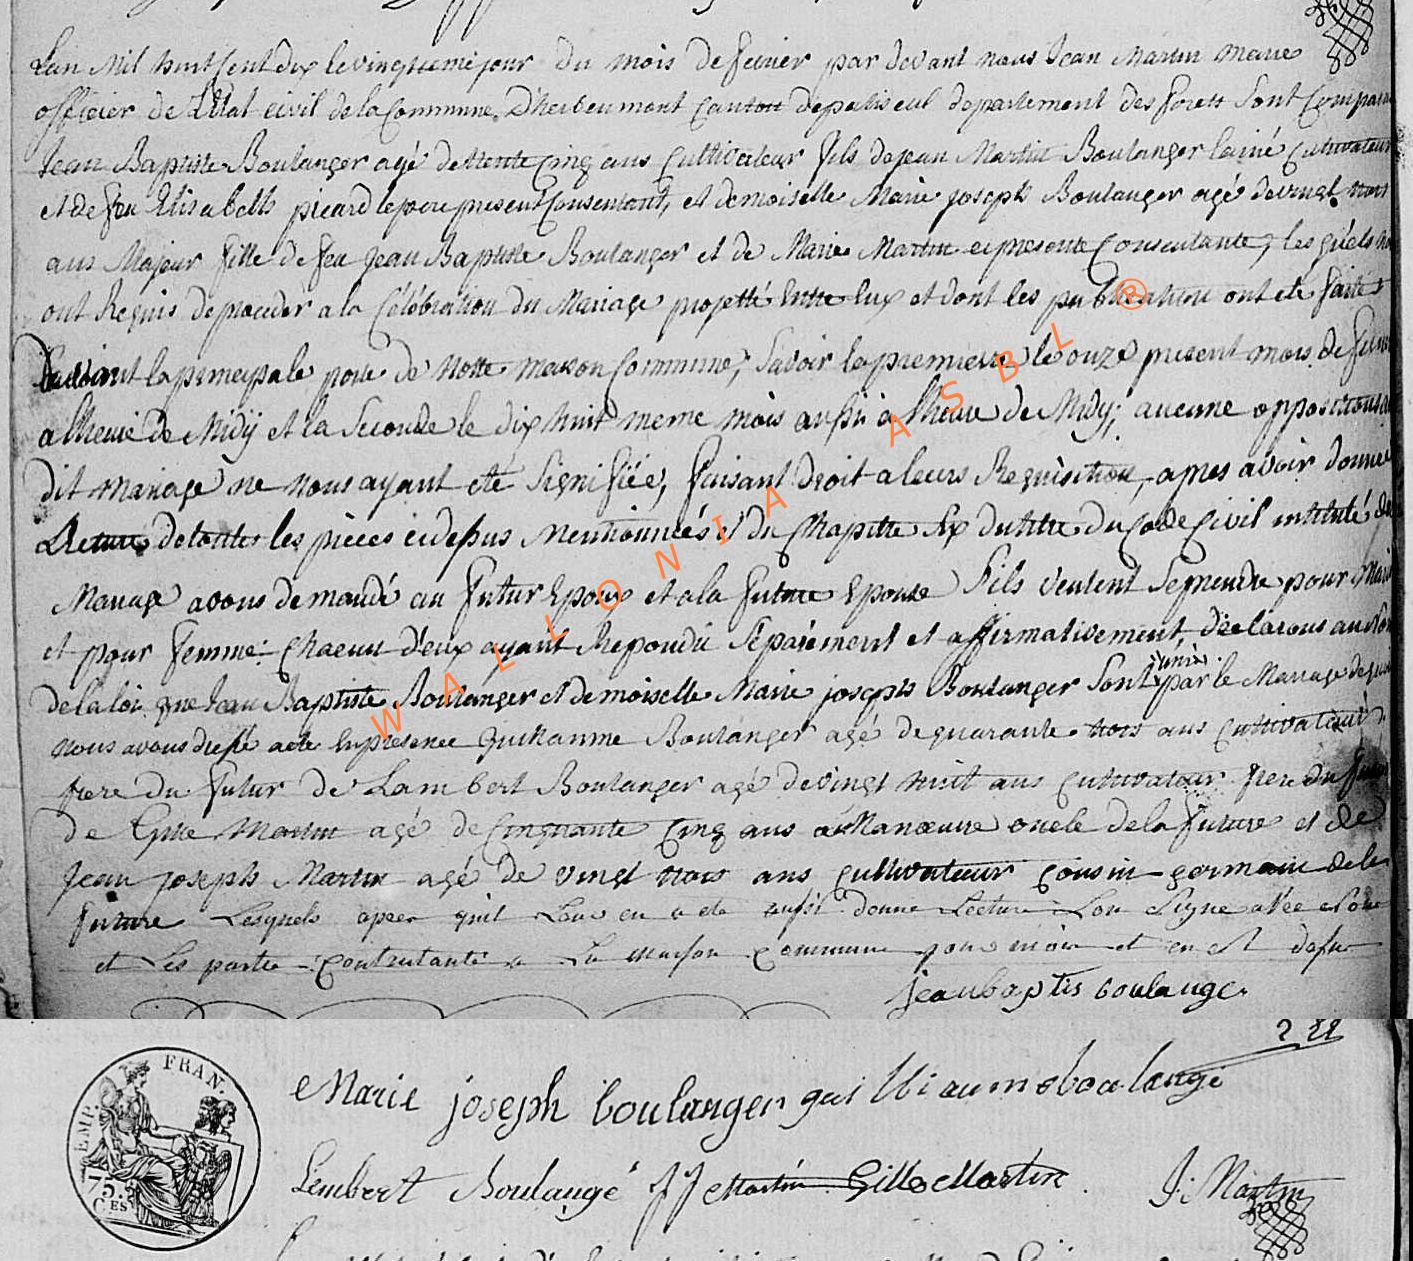 Lan Mil huit Cent dix le vingtieme jour du mois de fevrier par devant nous Jean Martin Maire
officier de L'Etat civil de la Commune D'herbeumont Canton depaliseul departement des forets Sont Comparu
Jean Baptiste Boulanger agé de trente Cinq ans Cultivateur fils de jean Martin Boulanger lainé Cultivateur
et de feu Elisabeth picard le pere present Consentant, et demoiselle Marie joseph Boulanger agé de vingt trois
ans Majeur fille de feu Jean Baptiste Boulanger et de Marie Martin ci presente Consentante, lesquels
ont Requis de proceder a la Célébration du Mariage projetté Entre Eux et dont les publications ont ete faites
devant la principale porte de Notre maison Commune; Savoir la premiere le onze present mois de fevrier
a lheure de Midÿ et la Seconde le dix huit meme mois aussi a lheure de Midy; aucune opposition au
dit mariage ne nous ayant eté Signifiée, faisant droit a leurs Requisition, apres avoir donné
Lecture de toutes les pièces cidessus Mentionnées et du Chapitre Six du titre du Code Civil intitulé du
Mariage avons demandé au futur Epoux et a la future Epouse Sils veulent Seprendre pour Mari
et pour femme: Chacun d'eux ayant Repondu Séparément et affirmativement, déclarons au Nom
de la loi que Jean Baptiste Boulanger et demoiselle Marie joseph Boulanger Sont unis par le Mariage dequoi
nous avons dressé acte Enpresence Guillaume Boulanger agé de quarante trois ans Cultivateur
frere du futur de Lambert Boulanger agé de vingt huit ans Cultivateur frere du futur
de Gille Martin agé de Cinquante Cinq ans Manœuvre oncle de la future et de
Jean joseph Martin agé de vingt trois ans Cultivateur Cousin germain de la
future Lesquels apres quil Leur en a ete aussi donne Lecture Lon Signe avec Nous
et Les partie Contractante a La maison Commune jour mois et en dessu
jean baptis boulange
2 22
Marie joseph boulanger guilliaume boulange
Lembert Boulangé J J Martin Gille Martin J. Martin
EMP. FRAN.
75.
CES
WALLONIA ASBL ®